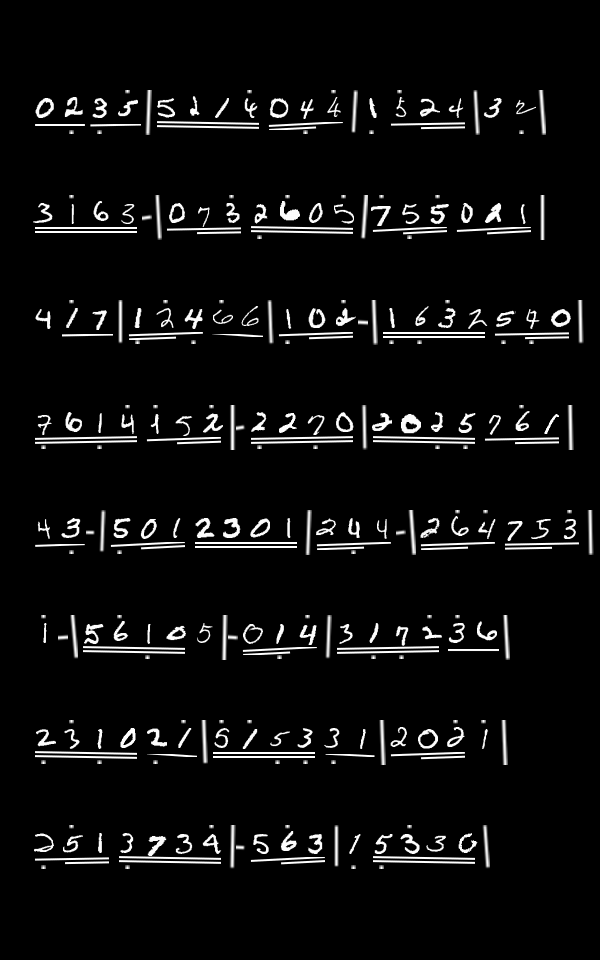 0235|5116044|1524|32|
3163-|0732605|755021|
417|12466|102-|1632540|
7614152|-2270|2025761|
43-|5012301|244-|264753|
1-|56105|-014|317236|
231021|515331|2021|
2513734|-563|15330|